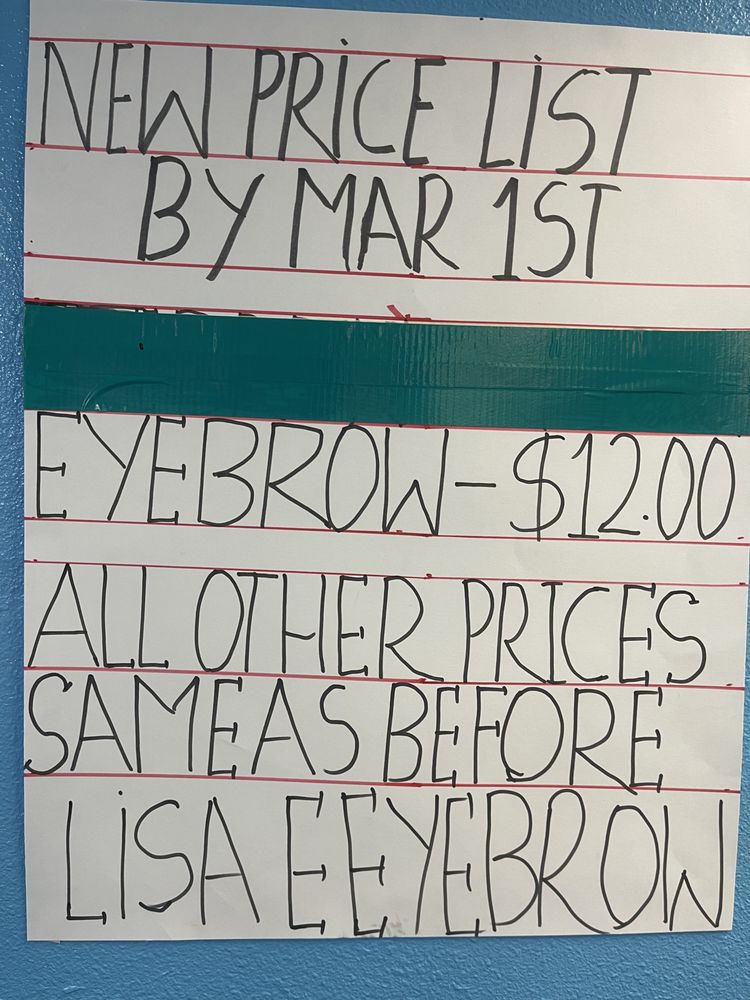 NEW PRiCE LiST
BY MAR 1ST
EYEBROW - $12.00
ALL OTHER PRICES
SAME AS BEFORE
LiSA E EYEBROW